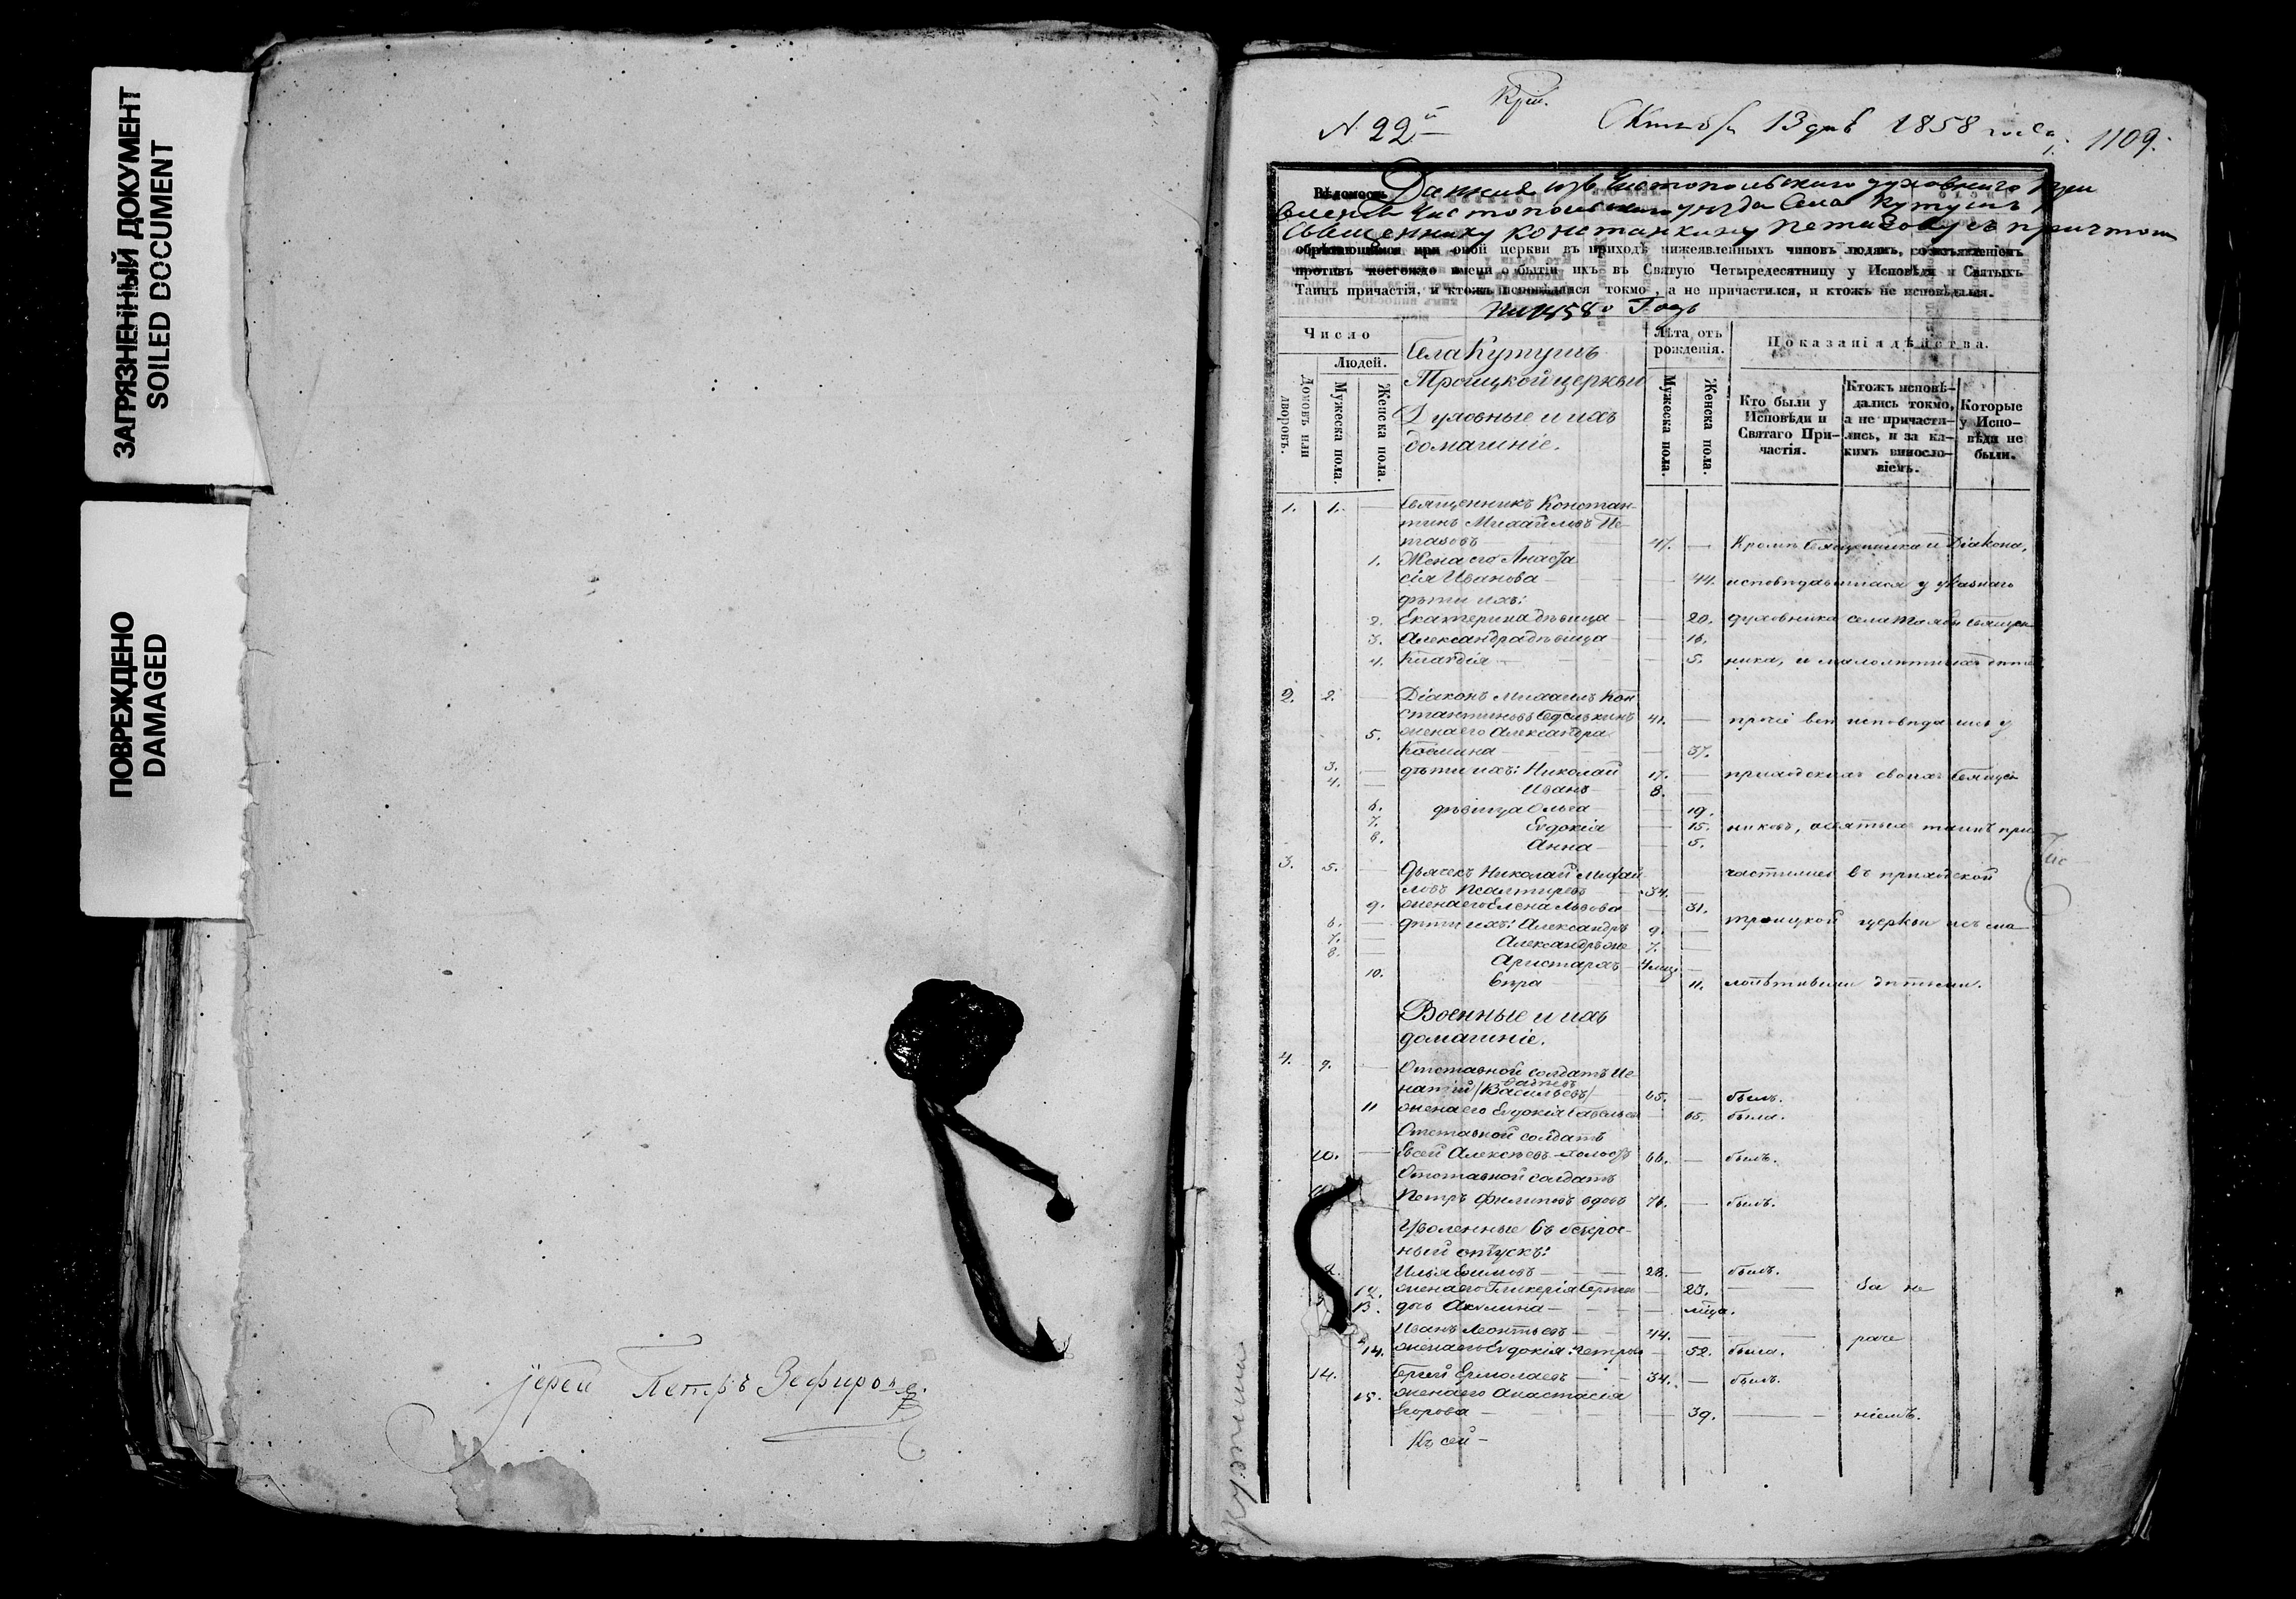 ЗАГРЯЗНЕННЫЙ ДОКУМЕНТ
SOILED DOCUMENT
ПОВРЕЖДЕНО
DAMAGED
Іерей Петръ Зефировъ
N. 22й
Октября 13 дня 1858 года
1109.
Вѣдомость
Данная изъ Чистопольскаго духовнаго
Чистопольскаго уѣзда Села Кутушъ
Священнику Константину Петизову съ причтом
обрѣтающимся при оной церкви въ приходѣ нижеявленныхъ чиновъ людямъ, со изъявленіемъ
противъ коегождо имени о бытіи ихъ въ Святую Четыредесятницу у Исповѣди и Святыхъ
Таинъ причастія, и ктожъ исповѣдался токмо, а не причастился, и ктожъ не исповѣдался.
на 1858й Годъ
Число
Людей.
Домовъ или дворовъ.
Мужеска пола.
Женска пола.
Села Кутушъ
Троицкой церкви
Духовные и ихъ
домашніе.
Лѣта отъ
рожденія.
Мужеска пола.
Женска пола.
Показанія дѣйства.
Кто были у
Исповѣди и
Святаго При-
частія.
Ктожъ исповѣ-
дались токмо,
а не причасти-
лись, и за ка-
кимъ винословіемъ.
Которые
у Испо-
вѣди не
были.
1. 1. — Священникъ Констан-
тинъ Михайловъ
47. — Кромѣ Священника и Діакона,
1. Жена его Анаста
сія Иванова — 44. исповѣдавшихся у
дѣти ихъ:
2. Екатерина дѣвица — 20. духовника села священ
3. Александра дѣвица — 16.
4. Клавдія — 5. ника, и малолѣтныхъ дѣтей
2. 2. — Діаконъ Михаилъ Кон
стантиновъ 41. — прочіе всѣ исповѣдались у
5. жена его Александра
Космина — 37.
3. — дѣти ихъ: Николай 17. — приходскихъ своихъ Священ
4. — Иванъ 8. —
6. дѣвица Ольга — 19.
7. Евдокія — 15. никовъ, святыхъ таинъ при
8. Анна — 5.
3. 5. — Дьячекъ Николай Михай
ловъ Псалтиревъ 34. — частились въ приходской
9. жена его Елена Львова — 31.
6. — дѣти ихъ: Александръ 9. — троицкой церкви
7. — Александръ же 7. —
8. — Аристархъ 4 мца —
10. Вѣра — 11. малолѣтными дѣтьми.
Военные и ихъ
домашніе.
4. 9. — Отставной солдатъ Иг-
натій /Васильевъ/ 65. — былъ.
11 жена его Евдокія Савельева 65. была.
Отставной солдатъ
10. — Евсей Алексѣевъ холостъ 66. — былъ.
Отставной солдатъ
Петръ Филиповъ вдовъ 76. — былъ.
Уволенные въ безсроч-
ный отпускъ:
Илья Ефимовъ — 28. — былъ.
12. жена его Гликерія Сергѣева — 23. — За не
13. дочь Акулина — мца.
Иванъ Леонтьевъ 44. — раче
14. жена его Евдокія Петрова — 52. была.
14. Сергей Ермолаевъ 34. — былъ.
15. жена его Анастасія
Егорова — 39. — ніемъ.
Къ сей —